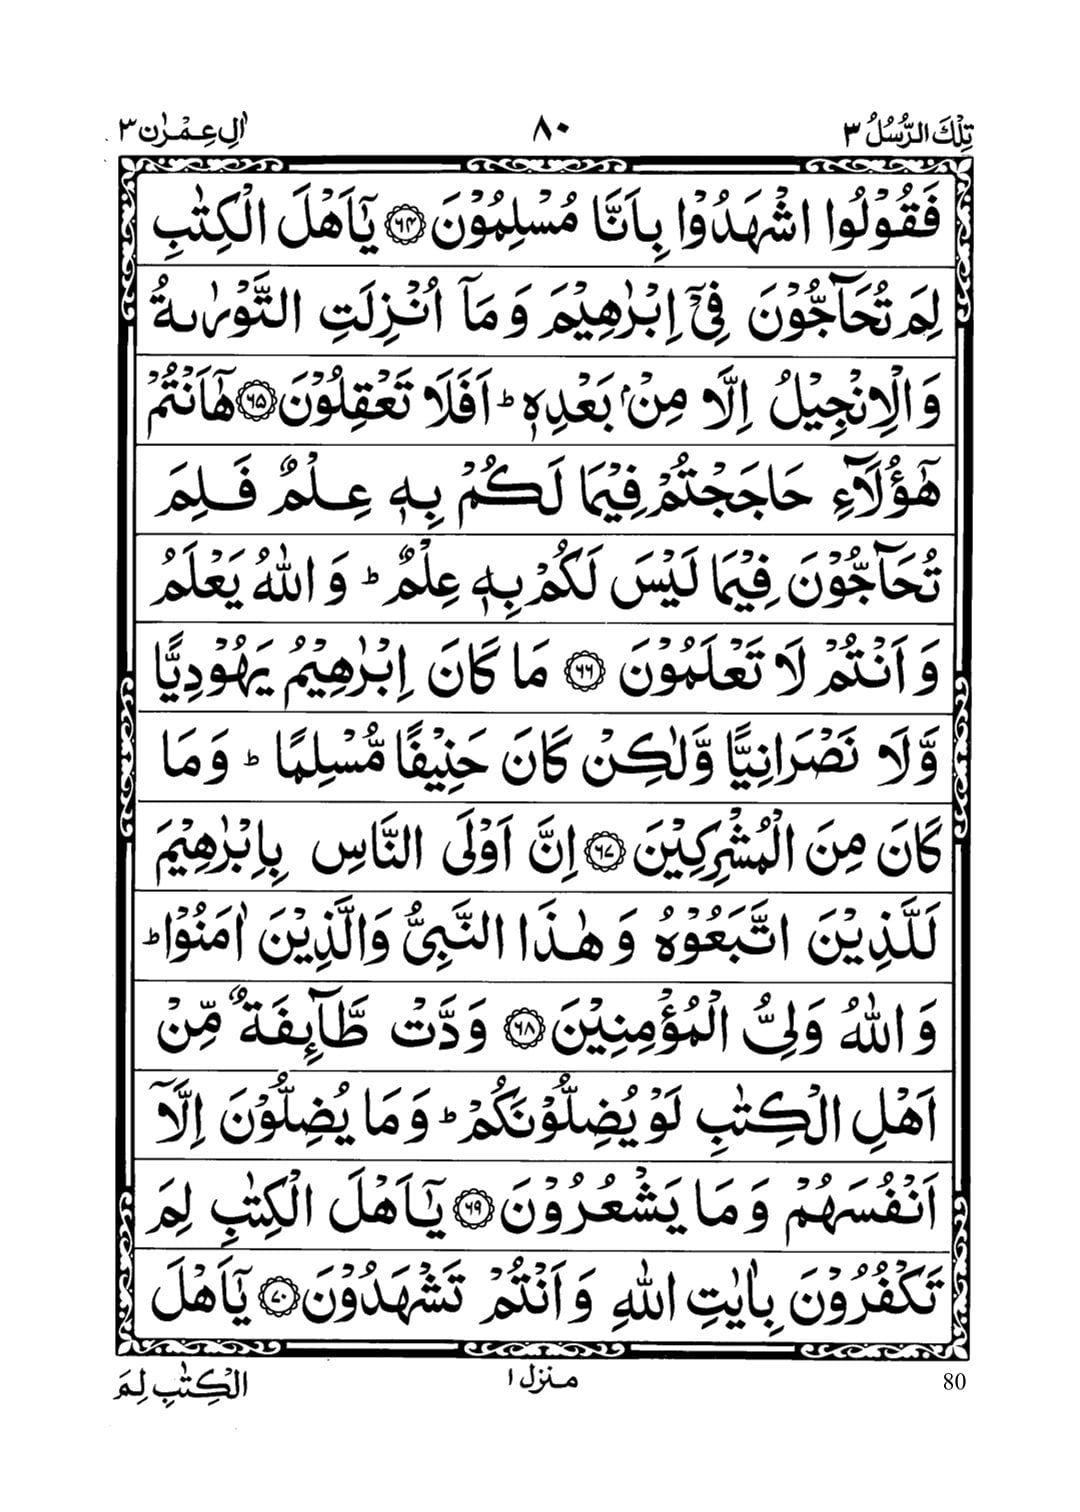 تِلْكَ الرُّسُلُ ٣
٨٠
اٰلِ عِمْرٰن ٣
فَقُوْلُوا اشْهَدُوْا بِاَنَّا مُسْلِمُوْنَ ﴿۶۴﴾ يٰۤاَهْلَ الْكِتٰبِ
لِمَ تُحَآجُّوْنَ فِيْۤ اِبْرٰهِيْمَ وَ مَاۤ اُنْزِلَتِ التَّوْرٰىةُ
وَ الْاِنْجِيْلُ اِلَّا مِنْۢ بَعْدِهٖ ؕ اَفَلَا تَعْقِلُوْنَ ﴿۶۵﴾ هٰۤاَنْتُمْ
هٰۤؤُلَآءِ حَاجَجْتُمْ فِيْمَا لَكُمْ بِهٖ عِلْمٌ فَلِمَ
تُحَآجُّوْنَ فِيْمَا لَيْسَ لَكُمْ بِهٖ عِلْمٌ ؕ وَ اللّٰهُ يَعْلَمُ
وَ اَنْتُمْ لَا تَعْلَمُوْنَ ﴿۶۶﴾ مَا كَانَ اِبْرٰهِيْمُ يَهُوْدِيًّا
وَّ لَا نَصْرَانِيًّا وَّ لٰكِنْ كَانَ حَنِيْفًا مُّسْلِمًا ؕ وَ مَا
كَانَ مِنَ الْمُشْرِكِيْنَ ﴿۶۷﴾ اِنَّ اَوْلَى النَّاسِ بِاِبْرٰهِيْمَ
لَلَّذِيْنَ اتَّبَعُوْهُ وَ هٰذَا النَّبِيُّ وَ الَّذِيْنَ اٰمَنُوْا ؕ
وَ اللّٰهُ وَلِيُّ الْمُؤْمِنِيْنَ ﴿۶۸﴾ وَدَّتْ طَّآىِٕفَةٌ مِّنْ
اَهْلِ الْكِتٰبِ لَوْ يُضِلُّوْنَكُمْ ؕ وَ مَا يُضِلُّوْنَ اِلَّاۤ
اَنْفُسَهُمْ وَ مَا يَشْعُرُوْنَ ﴿۶۹﴾ يٰۤاَهْلَ الْكِتٰبِ لِمَ
تَكْفُرُوْنَ بِاٰيٰتِ اللّٰهِ وَ اَنْتُمْ تَشْهَدُوْنَ ﴿۷۰﴾ يٰۤاَهْلَ
80
منزل ١
الْكِتٰبِ لِمَ